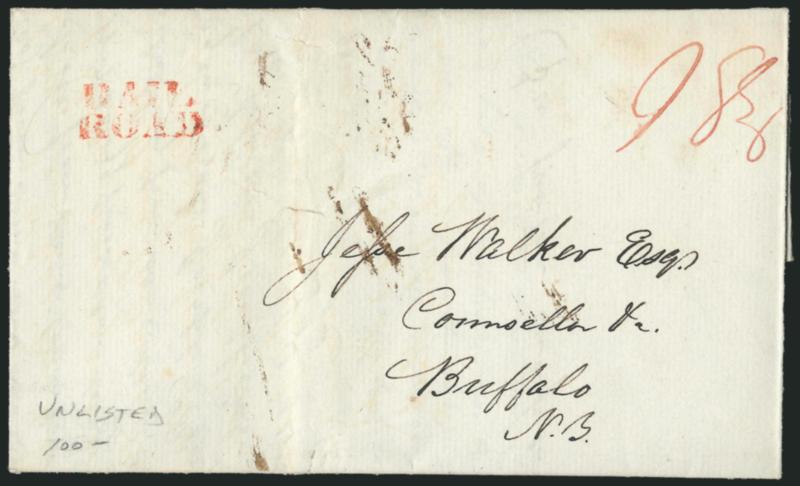 RAIL
ROAD
Jesse Walker Esqr.
Counsellor &c.
Buffalo
N.B.
UNLISTED
100 -